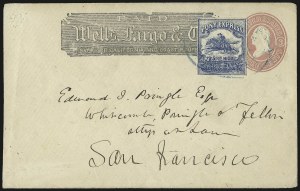 PAID
Wells, Fargo & C
PONY EXPRESS
Edmund D. Pringle Esq
Whitcomb, Pringle & Fellin
attys at Law
San Francisco